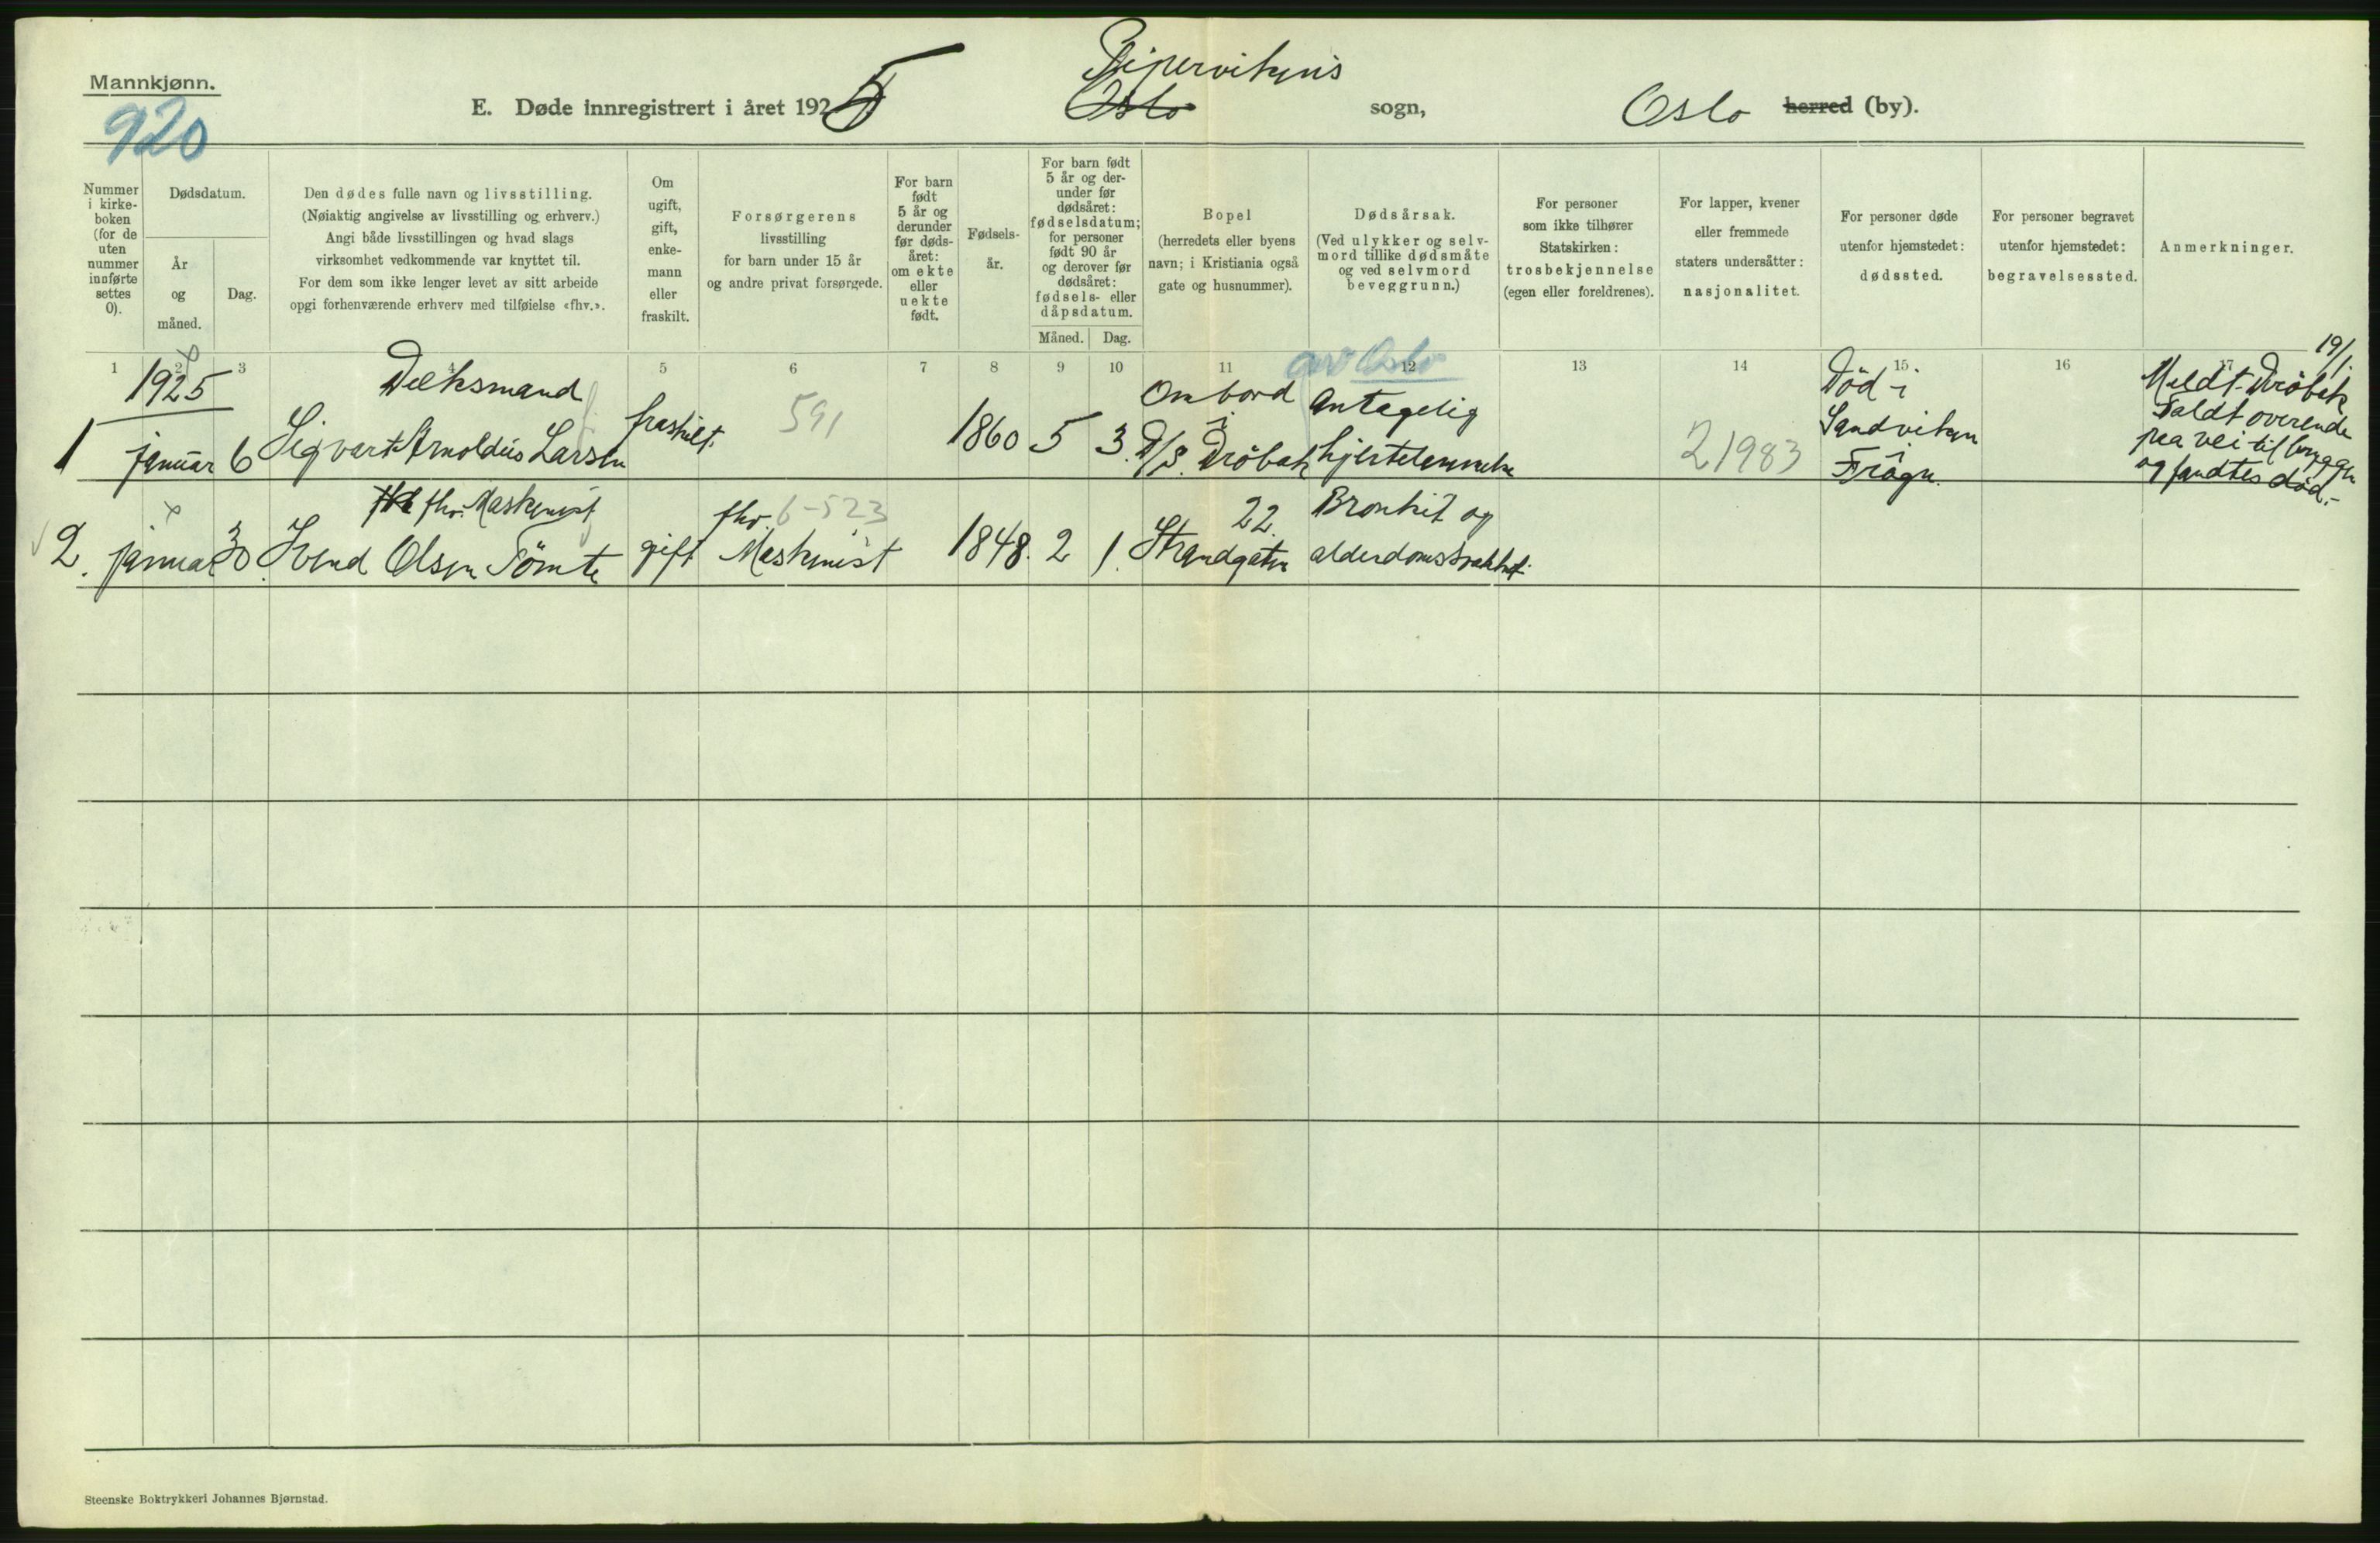 Mannkjønn.
920
E. Døde innregistrert i året 1925
Pipervikens
Oslo
sogn,
Oslo herred (by).
Nummer i kirke-boken (for de uten nummer innførte settes 0).
Dødsdatum.
År og måned.
Dag.
Den dødes fulle navn og livsstilling.
(Nøiaktig angivelse av livsstilling og erhverv.)
Angi både livsstillingen og hvad slags
virksomhet vedkommende var knyttet til.
For dem som ikke lenger levet av sitt arbeide
opgi forhenværende erhverv med tilføielse «fhv.».
Om ugift, gift, enke-mann eller fraskilt.
Forsørgerens
livsstilling
for barn under 15 år
og andre privat forsørgede.
For barn født 5 år og derunder før døds-året: om ekte eller uekte født.
Fødsels-år.
For barn født 5 år og der-under før dødsåret: fødselsdatum; for personer født 90 år og derover før dødsåret: fødsels- eller dåpsdatum.
Måned.
Dag.
Bopel
(herredets eller byens
navn; i Kristiania også
gate og husnummer).
Dødsårsak.
(Ved ulykker og selv-
mord tillike dødsmåte
og ved selvmord
beveggrunn.)
For personer
som ikke tilhører
Statskirken:
trosbekjennelse
(egen eller foreldrenes).
For lapper, kvener
eller fremmede
staters undersåtter:
nasjonalitet.
For personer døde
utenfor hjemstedet:
dødssted.
For personer begravet
utenfor hjemstedet:
begravelsessted.
Anmerkninger.
1 2 3 4 5 6 7 8 9 10 11 12 13 14 15 16 17
1925
Dæksmand
1 januar 6 Sigvart Arnoldus Larsen
fraskilt.
591
1860 5 3.
Ombord
i
D/S. Drøbak
Antagelig
hjertelammelse
21983
Død i
Sandviken
i
Frogn.
19/1
Meldt Drøbak
Faldt overende
paa vei til bryggen
og fandtes død.-
fhv. Maskinist
2. januar 30. Svend Olsen Tömte
gift
fhv. 6-523
Maskinist
1848. 2 1.
22
Strandgaten
Bronkit og
alderdomssvakhet.
Steenske Boktrykkeri Johannes Bjørnstad.